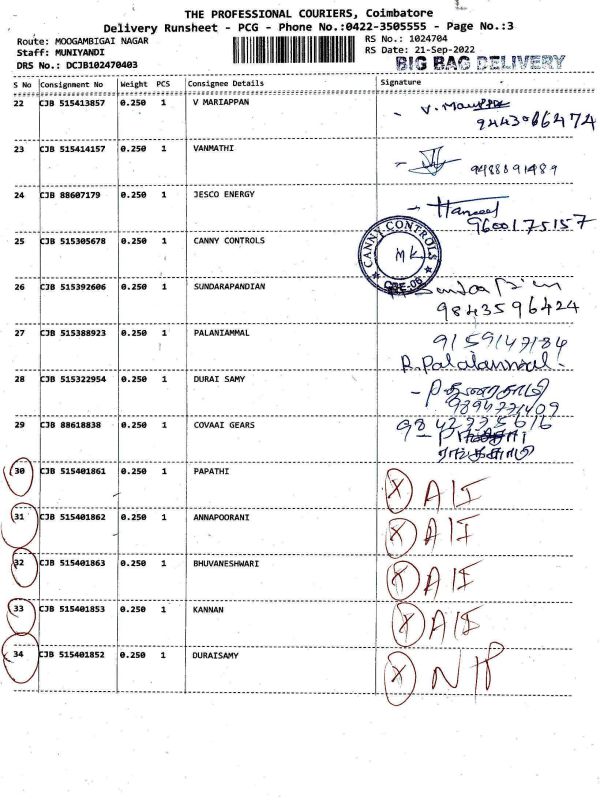 THE PROFESSIONAL COURIERS, Coimbatore
Delivery Runsheet - PCG - Phone No.:0422-3505555 - Page No.:3
Route: MOOGAMBIGAI NAGAR
RS No.: 1024704
Staff: MUNIYANDI
RS Date: 21-Sep-2022
DRS No.: DCJB102470403
BIG BAG DELIVERY
S No Consignment No Weight PCS Consignee Details Signature
22 CJB 515413857 0.250 1 V MARIAPPAN
23 CJB 515414157 0.250 1 VANMATHI
9488891489
24 CJB 88607179 0.250 1 JESCO ENERGY
9600175157
25 CJB 515305678 0.250 1 CANNY CONTROLS
CANNY CONTROLS
MK
CBE-06
26 CJB 515392606 0.250 1 SUNDARAPANDIAN
9843596424
27 CJB 515388923 0.250 1 PALANIAMMAL
9159147184
28 CJB 515322954 0.250 1 DURAI SAMY
29 CJB 88618838 0.250 1 COVAAI GEARS
30 CJB 515401861 0.250 1 PAPATHI X A/I
31 CJB 515401862 0.250 1 ANNAPOORANI X A/I
32 CJB 515401863 0.250 1 BHUVANESHWARI X A/I
33 CJB 515401853 0.250 1 KANNAN X A/I
34 CJB 515401852 0.250 1 DURAISAMY X N/P